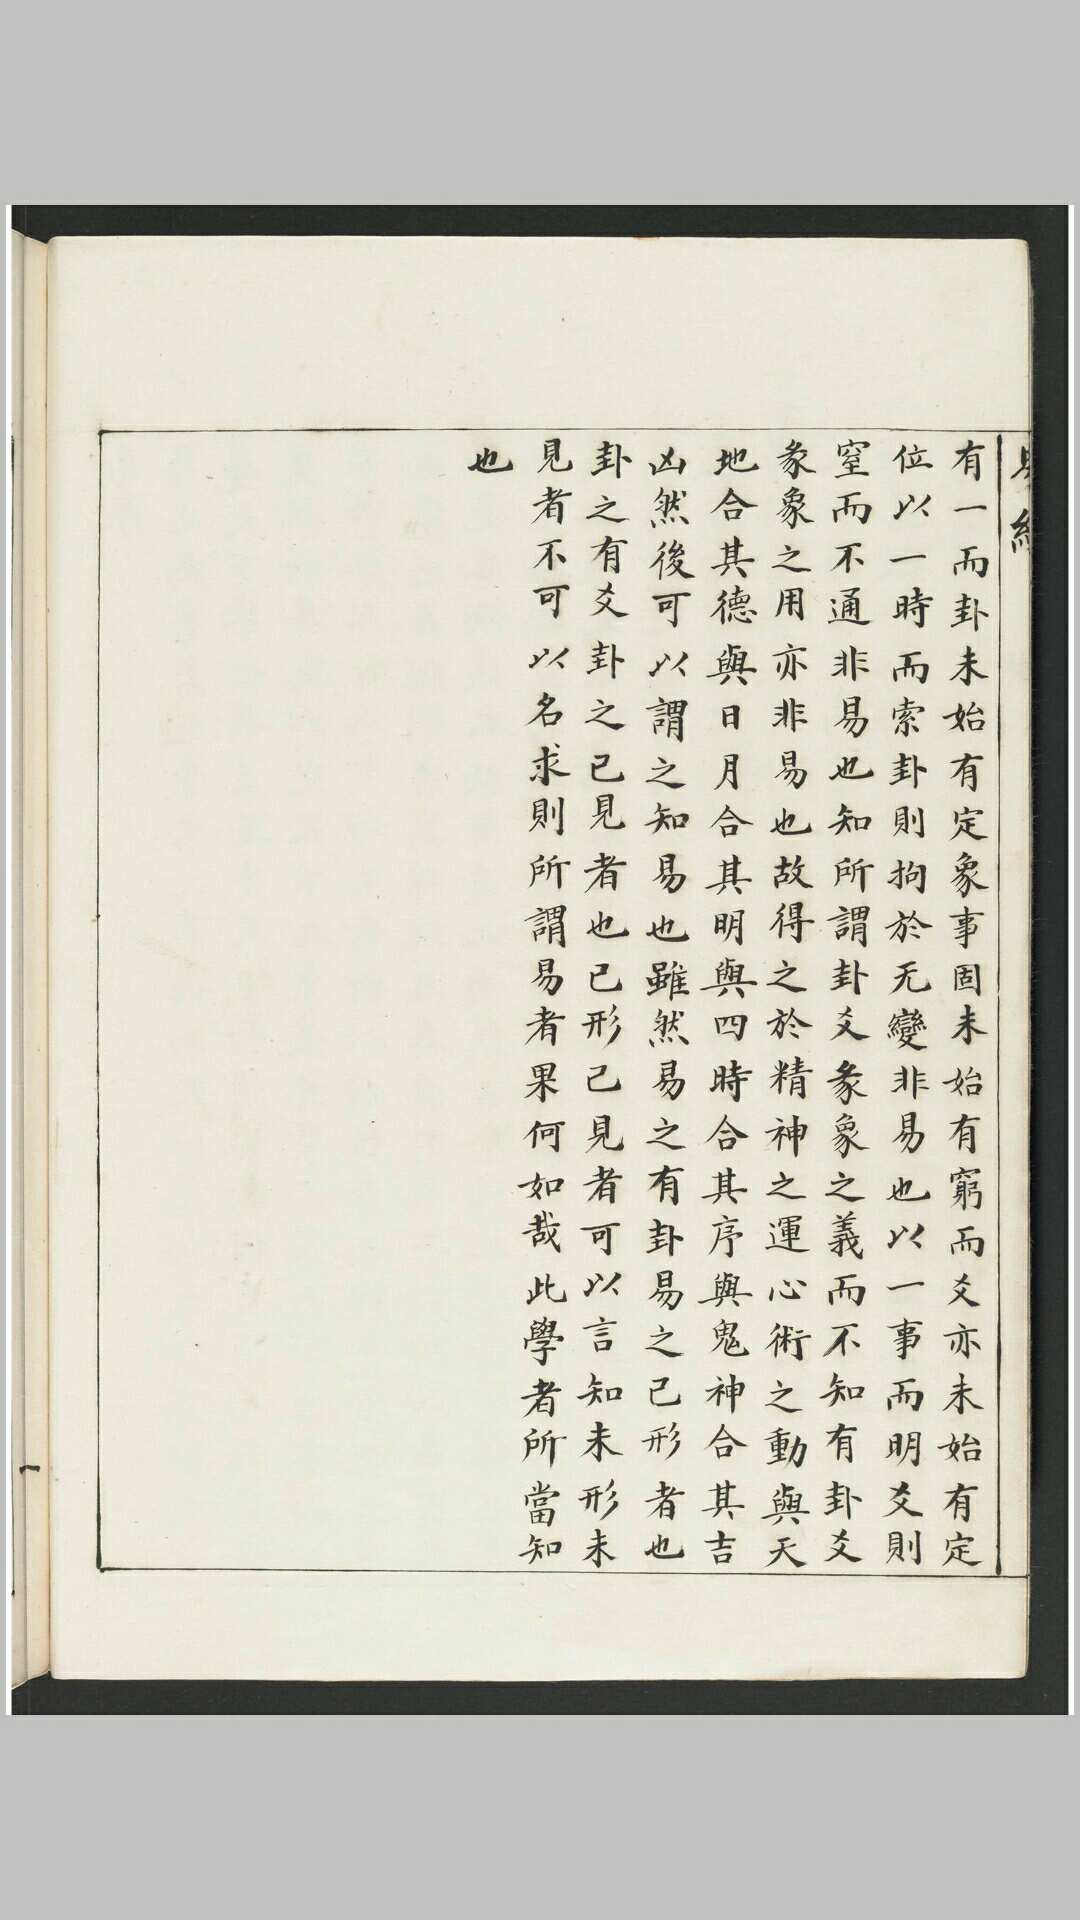 有一而卦未始有定象事固未始有窮而爻亦未始有定
位以一時而索卦則拘於无變非易也以一事而明爻則
窒而不通非易也知所謂卦爻彖象之義而不知有卦爻
彖象之用亦非易也故得之於精神之運心術之動與天
地合其德與日月合其明與四時合其序與鬼神合其吉
凶然後可以謂之知易也雖然易之有卦易之已形者也
卦之有爻卦之已見者也已形已見者可以言知未形未
見者不可以名求則所謂易者果何如哉此學者所當知
也